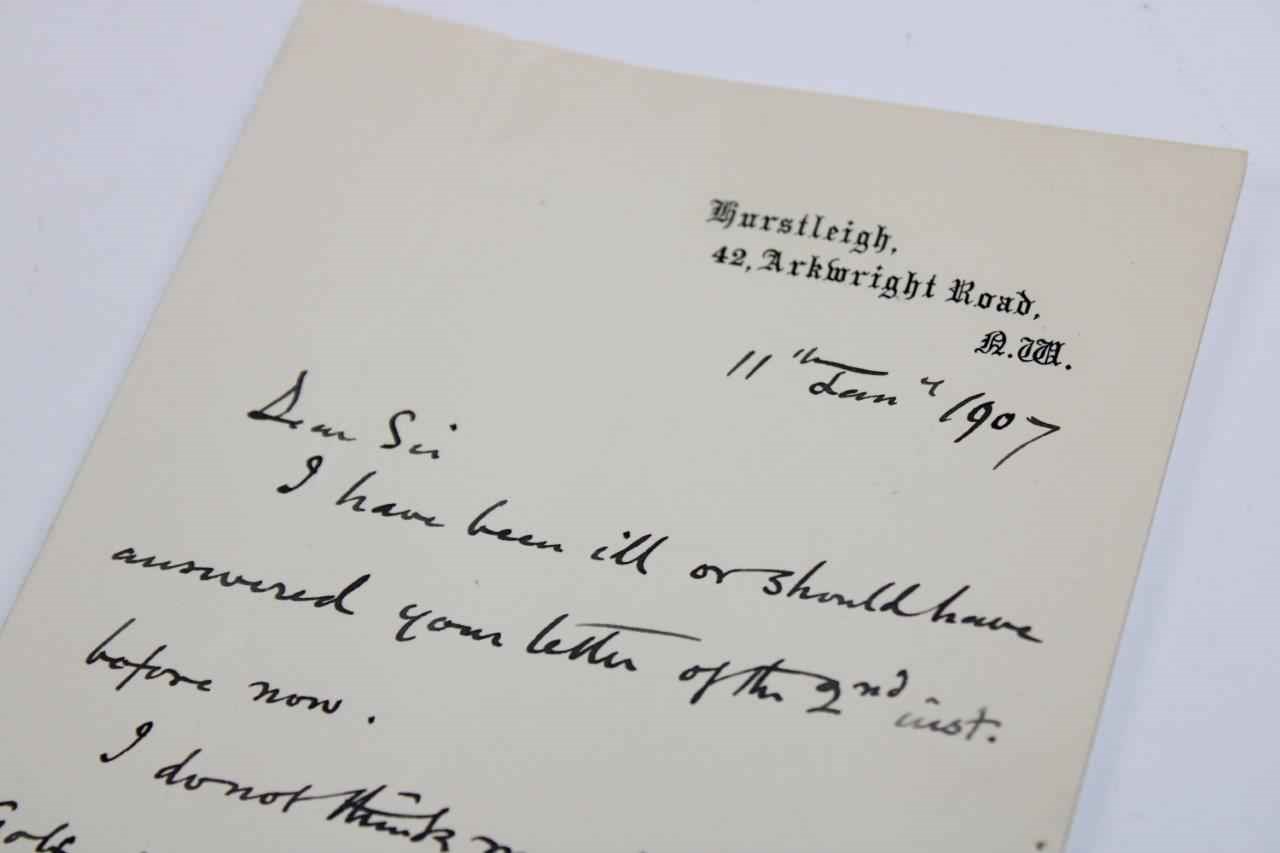 Hurstleigh,
42, Arkwright Road,
N.W.
11th Jany 1907
Dear Sir
I have been ill or should have
answered your letter of the 2nd inst.
before now.
I do not think
Golf